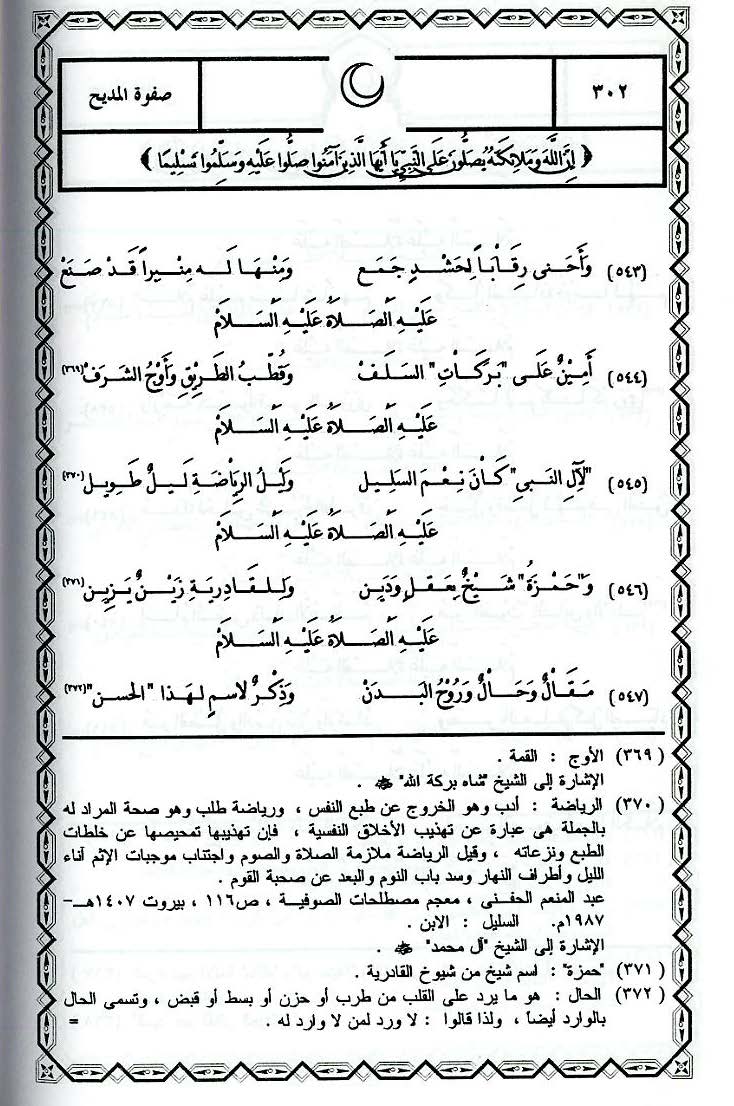 ٣٠٢ صفوة المديح
﴿ إِنَّ اللَّهَ وَمَلَائِكَتَهُ يُصَلُّونَ عَلَى النَّبِيِّ يَا أَيُّهَا الَّذِينَ آمَنُوا صَلُّوا عَلَيْهِ وَسَلِّمُوا تَسْلِيمًا ﴾
(٥٤٣) وَأَحَنى رِقَاباً لِحَشْدٍ جَمَع وَمِنْهَا لَه مِنْبراً قَدْ صَنَعْ
عَلَيْهِ الصَّلَاةُ عَلَيْهِ السَّلَامْ
(٥٤٤) أَمِيْنٌ عَلَى "بَرَكَاتِ" السَلَفْ وَقُطْبُ الطَرِيْقِ وَأَوْجُ الشَرَفْ(٣٦٩)
عَلَيْهِ الصَّلَاةُ عَلَيْهِ السَّلَامْ
(٥٤٥) "لآلِ النَبي" كَانَ نِعْمَ السَلِيل وَلَيْلُ الرِيَاضَةِ لَيلٌ طَوِيل(٣٧٠)
عَلَيْهِ الصَّلَاةُ عَلَيْهِ السَّلَامْ
(٥٤٦) وَ"حَمْزَةُ" شَيْخٌ بِعَقلٍ وَدَين وَلِلقَادِرِيةِ زَيْنٌ يَزِين(٣٧١)
عَلَيْهِ الصَّلَاةُ عَلَيْهِ السَّلَامْ
(٥٤٧) مَقَالٌ وَحَالٌ وَرُوْحُ البَدَنْ وَذِكْرٌ لاسمٍ لِهَذا "الحسن"(٣٧٢)
(٣٦٩) الأوج : القمة .
الإشارة إلى الشيخ "شاه بركة الله" ﷺ .
(٣٧٠) الرياضة : أدب وهو الخروج عن طبع النفس ، ورياضة طلب وهو صحة المراد له
بالجملة هى عبارة عن تهذيب الأخلاق النفسية ، فإن تهذيبها تمحيصها عن خلطات
الطبع ونزعاته ، وقيل الرياضة ملازمة الصلاة والصوم واجتناب موجبات الإثم آناء
الليل وأطراف النهار وسد باب النوم والبعد عن صحبة القوم .
عبد المنعم الحفنى ، معجم مصطلحات الصوفية ، ص١١٦ ، بيروت ١٤٠٧هـ-
١٩٨٧م. السليل : الابن .
الإشارة إلى الشيخ "آل محمد" .
(٣٧١) "حمزة" : اسم شيخ من شيوخ القادرية .
(٣٧٢) الحال : هو ما يرد على القلب من طرب أو حزن أو بسط أو قبض ، وتسمى الحال
بالوارد أيضاً ، ولذا قالوا : لا ورد لمن لا وارد له . =